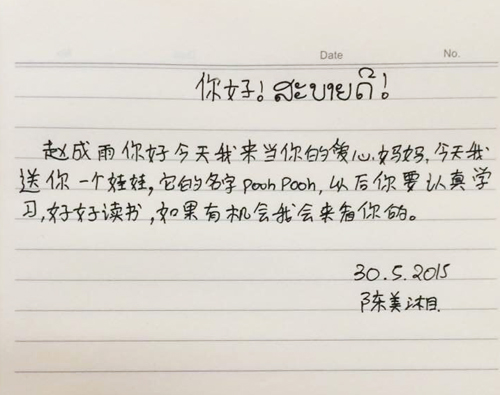 Date No.
你好! ສະບາຍດີ!
赵成雨你好今天我来当你的爱心妈妈,今天我
送你一个娃娃,它的名字Pooh Pooh,以后你要认真学
习,好好读书,如果有机会我会来看你的。
30.5.2015
陈美湘